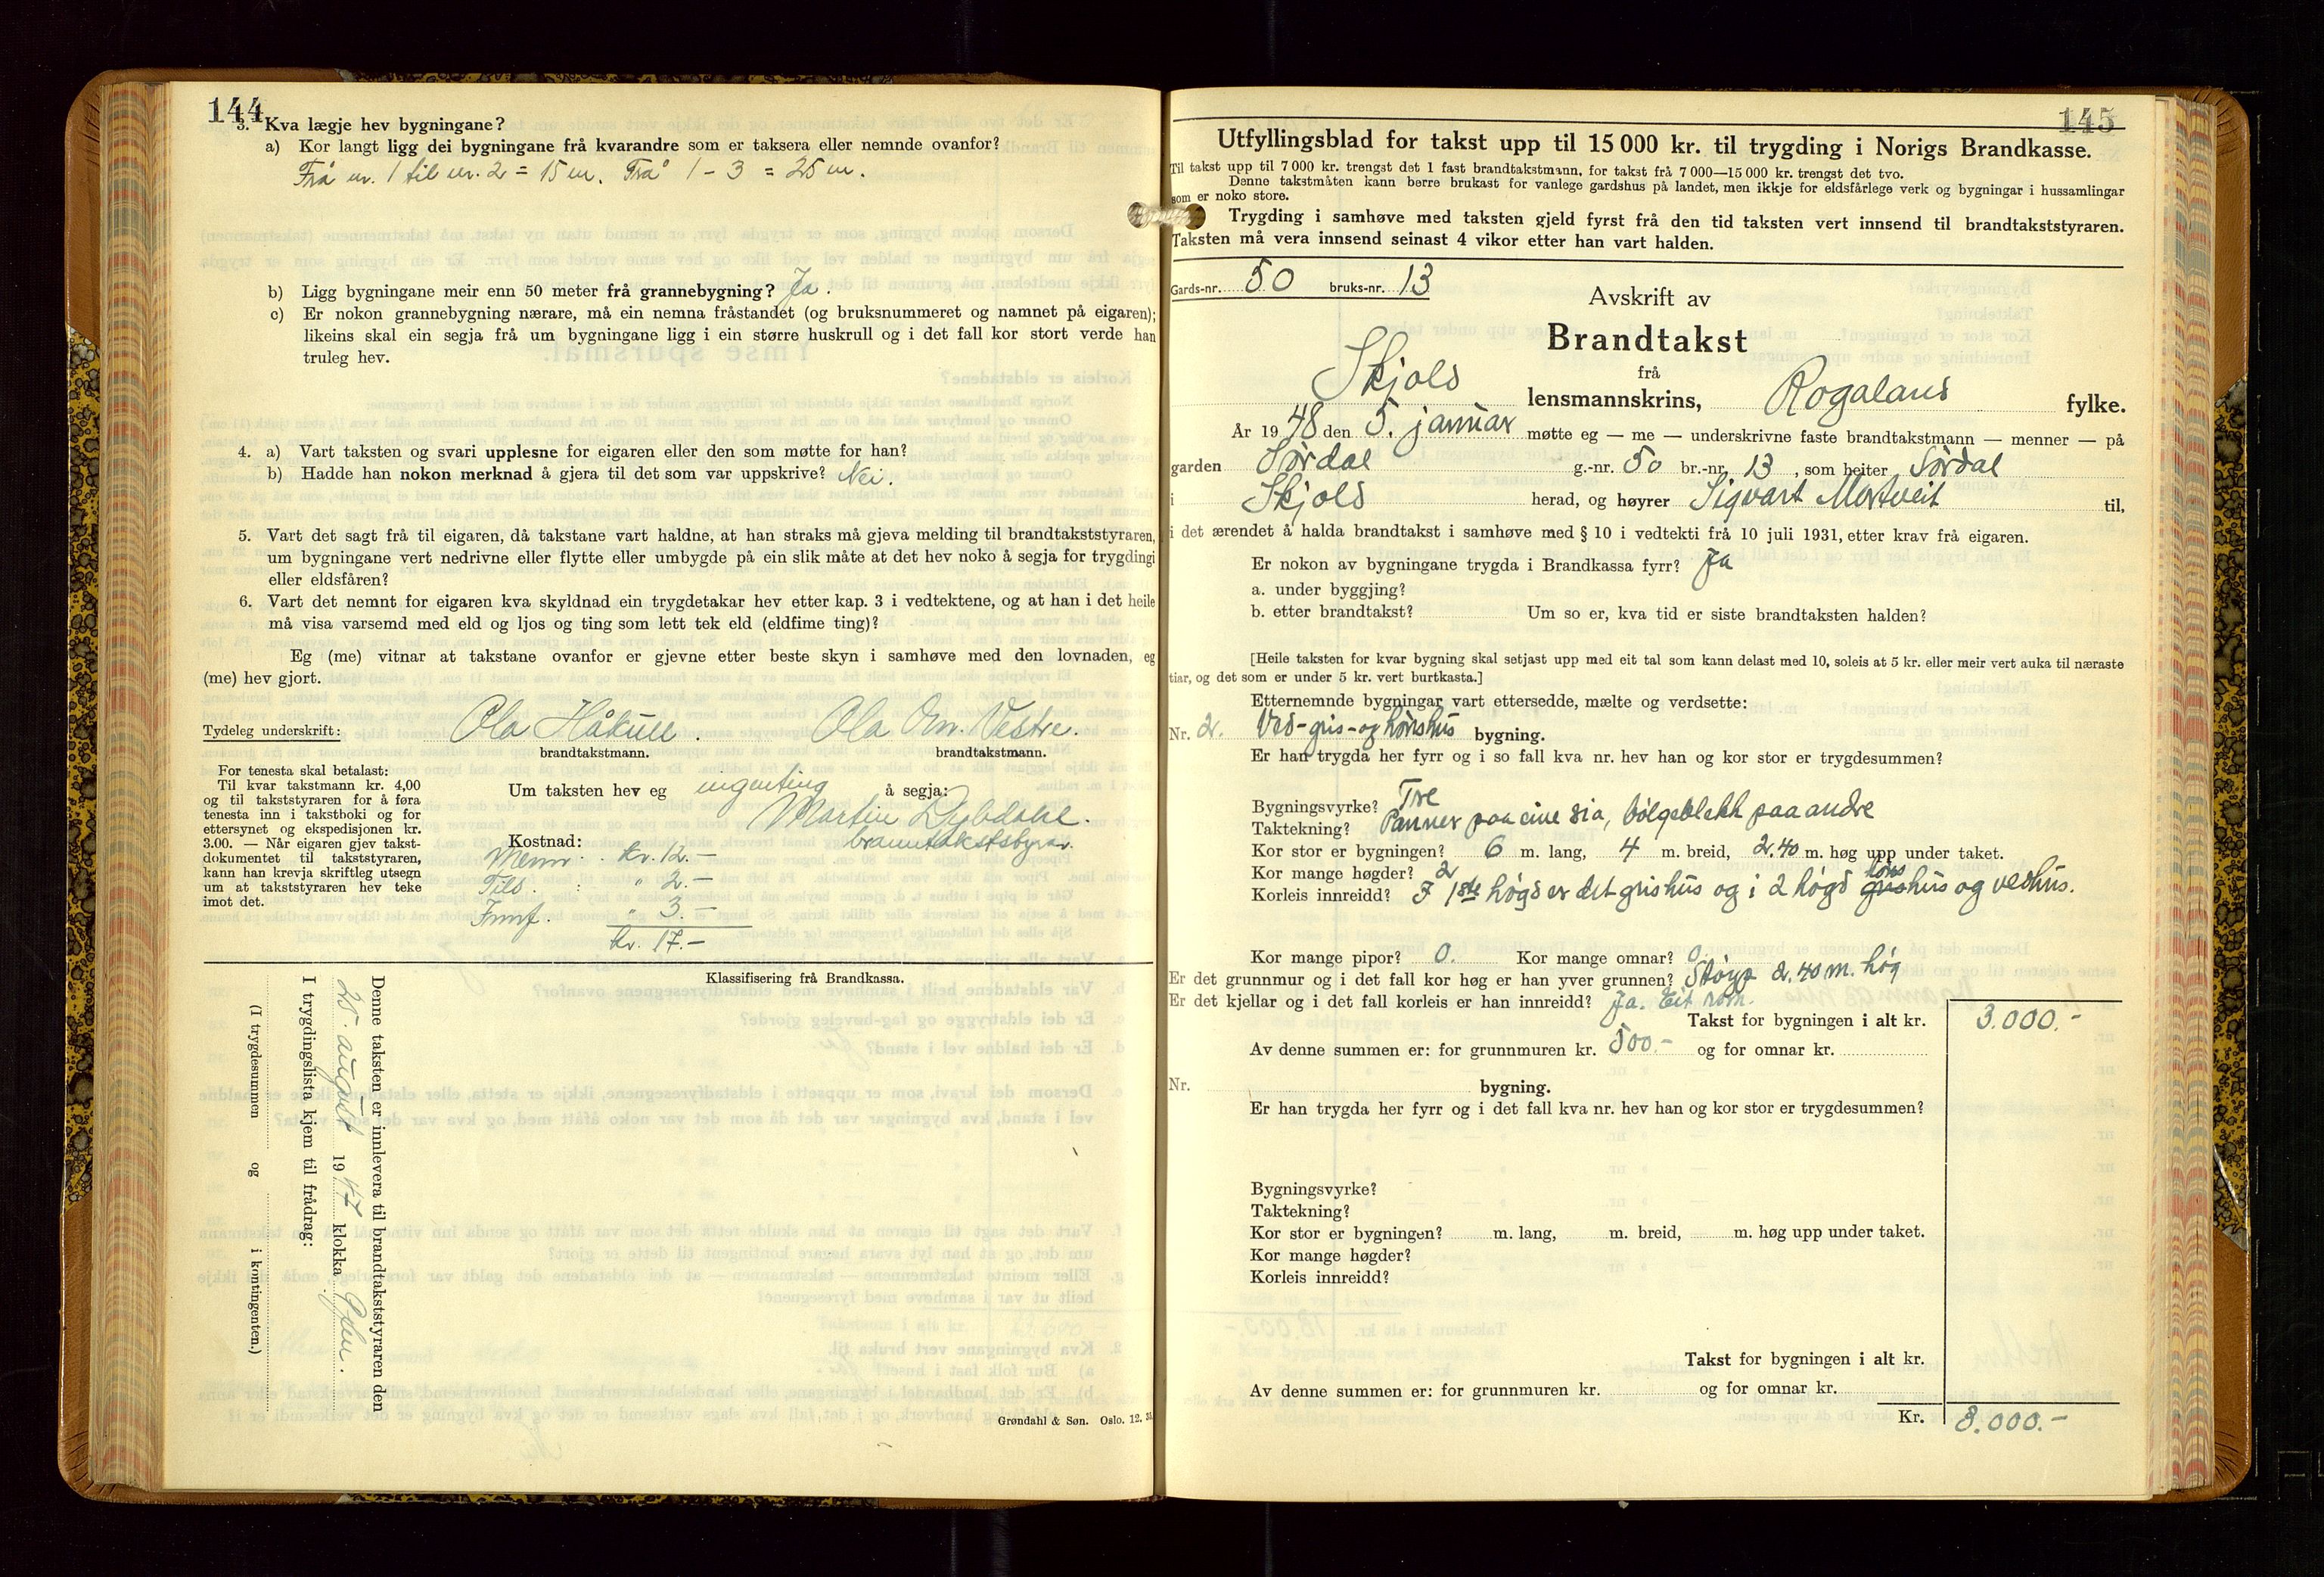 144
3. Kva lægje hev bygningane?
a) Kor langt ligg dei bygningane frå kvarandre som er taksera eller nemnde ovanfor?
Frå nr. 1 til nr. 2 = 15 m. Frå 1 - 3 = 25 m.
b) Ligg bygningane meir enn 50 meter frå grannebygning? Ja.
c) Er nokon grannebygning nærare, må ein nemna fråstandet (og bruksnummeret og namnet på eigaren);
likeins skal ein segja frå um bygningane ligg i ein større huskrull og i det fall kor stort verde han
truleg hev.
4. a) Vart taksten og svari upplesne for eigaren eller den som møtte for han?
b) Hadde han nokon merknad å gjera til det som var uppskrive? Nei.
5. Vart det sagt frå til eigaren, då takstane vart haldne, at han straks må gjeva melding til brandtakststyraren,
um bygningane vert nedrivne eller flytte eller umbygde på ein slik måte at det hev noko å segja for trygdingi
eller eldsfåren?
6. Vart det nemnt for eigaren kva skyldnad ein trygdetakar hev etter kap. 3 i vedtektene, og at han i det heile
må visa varsemd med eld og ljos og ting som lett tek eld (eldfime ting)?
Eg (me) vitnar at takstane ovanfor er gjevne etter beste skyn i samhøve med den lovnaden, eg
(me) hev gjort.
Tydeleg underskrift: Ola Håkull. Ola Om. Vestre.
brandtakstmann. brandtakstmann.
For tenesta skal betalast:
Til kvar takstmann kr. 4,00
og til takststyraren for å føra
tenesta inn i takstboki og for
ettersynet og ekspedisjonen kr.
3.00. — Når eigaren gjev takst-
dokumentet til takststyraren,
kann han krevja skriftleg utsegn
um at takststyraren hev teke
imot det.
Um taksten hev eg ingenting å segja:
Martin
Kostnad:
Menn. kr. 12.-
Tils. : " 2.-
" 3.-
kr. 17.-
Klassifisering frå Brandkassa.
Denne taksten er innlevera til brandtakststyraren den
25. august 1947 klokka
I trygdingslista kjem til frådrag:
(I trygdesummen og i kontingenten.)
Grøndahl & Søn. Oslo. 12. 35
145
Utfyllingsblad for takst upp til 15 000 kr. til trygding i Norigs Brandkasse.
Til takst upp til 7 000 kr. trengst det 1 fast brandtakstmann, for takst frå 7 000—15 000 kr. trengst det tvo.
Denne takstmåten kann berre brukast for vanlege gardshus på landet, men ikkje for eldsfårlege verk og bygningar i hussamlingar
som er noko store.
Trygding i samhøve med taksten gjeld fyrst frå den tid taksten vert innsend til brandtakststyraren.
Taksten må vera innsend seinast 4 vikor etter han vart halden.
Gards-nr. 50 bruks-nr. 13
Avskrift av
Brandtakst
frå
Skjold lensmannskrins, Rogaland fylke.
År 1948 den 5. januar møtte eg — me — underskrivne faste brandtakstmann — menner — på
garden Sørdal g.-nr. 50 br.-nr. 13, som heiter Sørdal
i Skjold herad, og høyrer Sigvart Mortveit til,
i det ærendet å halda brandtakst i samhøve med § 10 i vedtekti frå 10 juli 1931, etter krav frå eigaren.
Er nokon av bygningane trygda i Brandkassa fyrr? Ja
a. under byggjing?
b. etter brandtakst? Um so er, kva tid er siste brandtaksten halden?
[Heile taksten for kvar bygning skal setjast upp med eit tal som kann delast med 10, soleis at 5 kr. eller meir vert auka til næraste
tiar, og det som er under 5 kr. vert burtkasta.]
Etternemnde bygningar vart ettersedde, mælte og verdsette:
Nr. 2. Ved-gris-og hønshus bygning.
Er han trygda her fyrr og i so fall kva nr. hev han og kor stor er trygdesummen?
Bygningsvyrke? Tre
Taktekning? Panner paa eine sia, bølgeblekk paa andre
Kor stor er bygningen? 6 m. lang, 4 m. breid, 2.40 m. høg upp under taket.
Kor mange høgder? 2
Korleis innreidd? I 1ste høgd er det grishus og i 2 høgd grishus høns og vedhus.
Kor mange pipor? 0. Kor mange omnar? 0.
Er det grunnmur og i det fall kor høg er han yver grunnen? Støypt 2.40 m. høg
Er det kjellar og i det fall korleis er han innreidd? Ja. Eit rom.
Takst for bygningen i alt kr. 3.000.-
Av denne summen er: for grunnmuren kr. 500.- og for omnar kr.
Nr. bygning.
Er han trygda her fyrr og i det fall kva nr. hev han og kor stor er trygdesummen?
Bygningsvyrke?
Taktekning?
Kor stor er bygningen? m. lang, m. breid, m. høg upp under taket.
Kor mange høgder?
Korleis innreidd?
Takst for bygningen i alt kr.
Av denne summen er: for grunnmuren kr. og for omnar kr.
Kr. 3.000.-